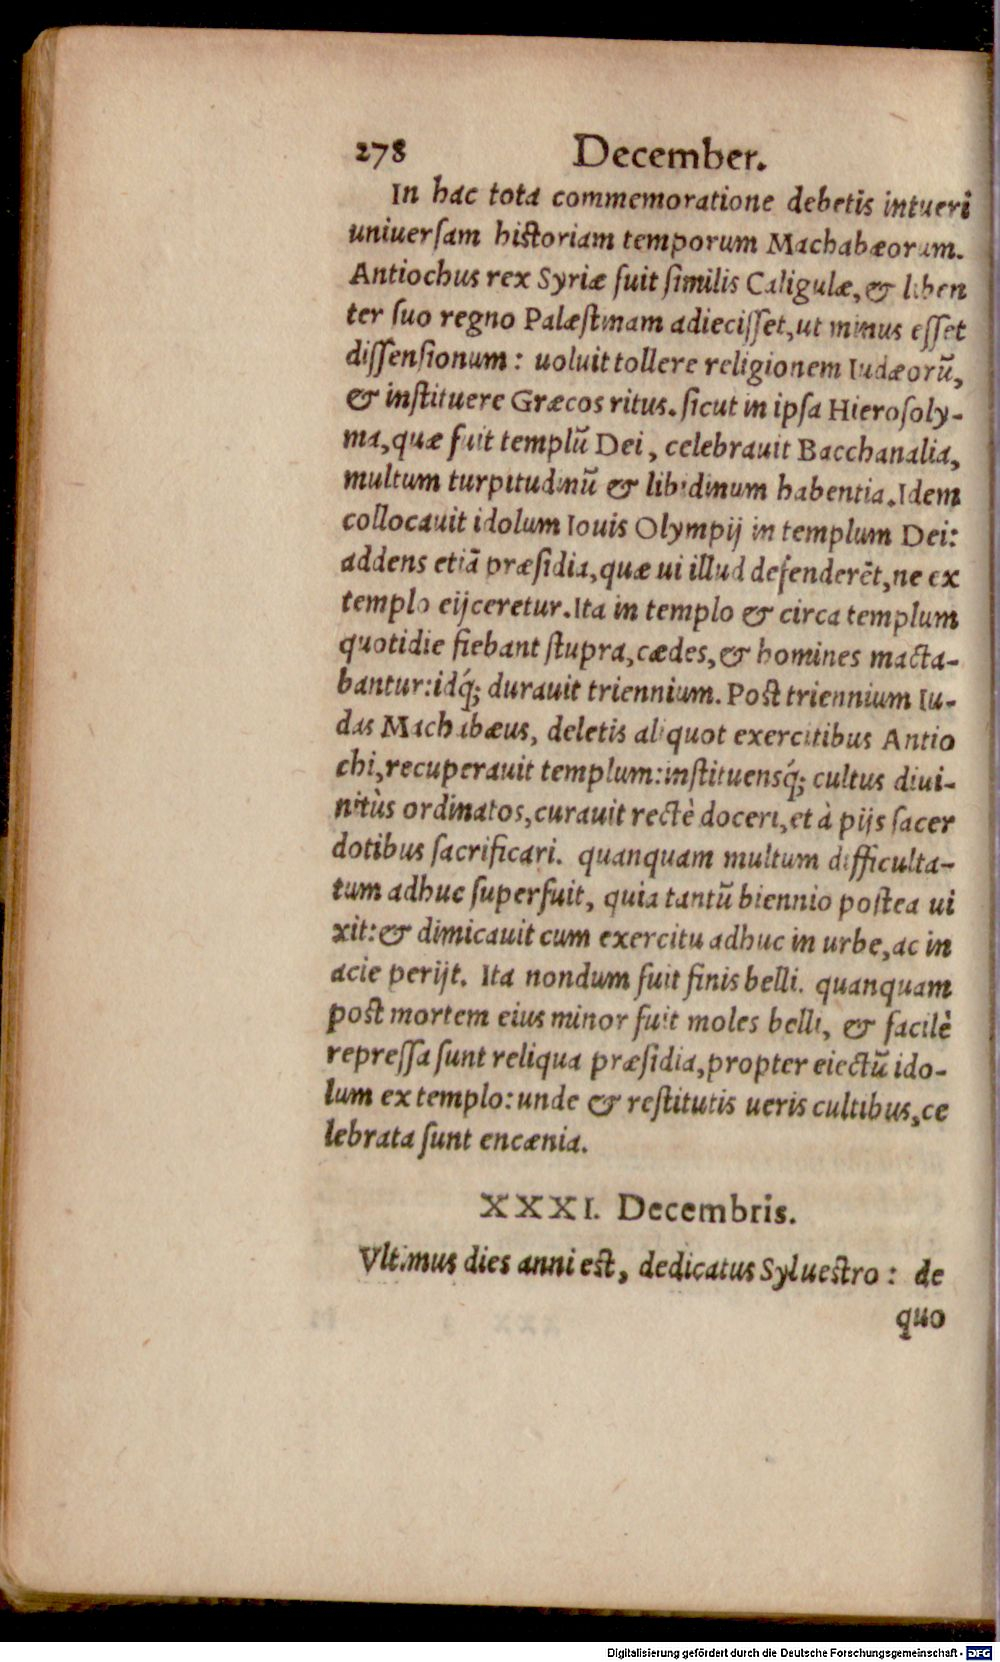 278 December.
In hac tota commemoratione debetis intueri
uniuersam historiam temporum Machabæorum.
Antiochus rex Syriæ fuit similis Caligulæ, & liben
ter suo regno Palæstinam adiecisset, ut minus esset
dissensionum: uoluit tollere religionem Iudæorũ,
& instituere Græcos ritus. sicut in ipsa Hierosoly-
ma, quæ fuit templũ Dei, celebrauit Bacchanalia,
multum turpitudinũ & libidinum habentia. Idem
collocauit idolum Iouis Olympij in templum Dei:
addens etiã præsidia, quæ ui illud defenderẽt, ne ex
templo eijceretur. Ita in templo & circa templum
quotidie fiebant stupra, cædes, & homines macta-
bantur: idq́; durauit triennium. Post triennium Iu-
das Machabæus, deletis aliquot exercitibus Antio
chi, recuperauit templum: instituensq́; cultus diui-
nitùs ordinatos, curauit rectè doceri, et à pijs sacer
dotibus sacrificari. quanquam multum difficulta-
tum adhuc superfuit, quia tantũ biennio postea ui
xit: & dimicauit cum exercitu adhuc in urbe, ac in
acie perijt. Ita nondum fuit finis belli. quanquam
post mortem eius minor fuit moles belli, & facilè
repressa sunt reliqua præsidia, propter eiectũ ido-
lum ex templo: unde & restitutis ueris cultibus, ce
lebrata sunt encænia.
XXXI. Decembris.
Vltimus dies anni est, dedicatus Syluestro: de
quo
Digitalisierung gefördert durch die Deutsche Forschungsgemeinschaft - DFG